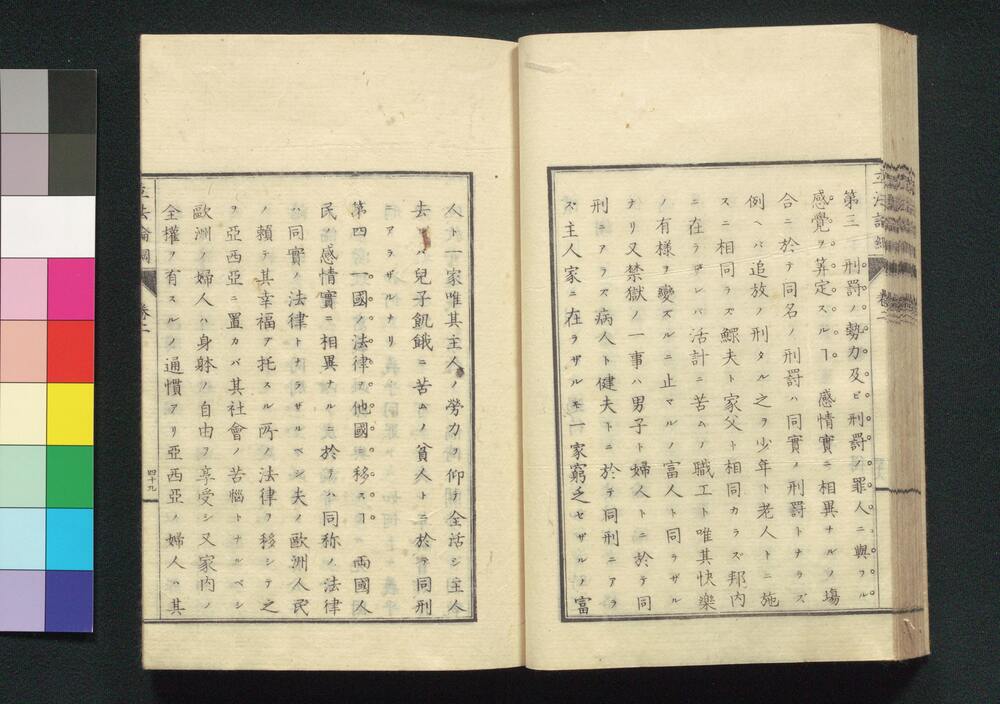 立法論綱
卷二
第三 刑罰ノ勢力及ビ刑罰ノ罪人ニ與フル
感覺ヲ筭定スルヿ 感情實ニ相異ナルノ塲
合ニ於テ同名ノ刑罰ハ同實ノ刑罰トナラズ
例ヘバ追放ノ刑タル之ヲ少年ト老人トニ施
スニ相同ラズ鰥夫ト家父ト相同カラズ邦内
ニ在ラザレバ活計ニ苦ムノ職工ト唯其快樂
ノ有樣ヲ變ズルニ止マルノ富人ト同ラザル
ナリ又禁獄ノ一事ハ男子ト婦人トニ於テ同
刑ニアラズ病人ト健夫トニ於テ同刑ニアラ
ズ主人家ニ在ラザルモ一家窮乏セザルノ富
人ト一家唯其主人ノ勞力ヲ仰テ全活シ主人
去レバ兒子飢餓ニ苦ムノ貧人トニ於テ同刑
ニアラザルナリ
第四 一國ノ法律ヲ他國ニ移スヿ 兩國人
民ノ感情實ニ相異ナルニ於テハ同称ノ法律
ハ同實ノ法律トナラザルベシ夫ノ歐洲人民
ノ賴テ其幸福ヲ托スル所ノ法律ヲ移シテ之
ヲ亞西亞ニ置カバ其社會ノ苦惱トナルベシ
歐洲ノ婦人ハ身躰ノ自由ヲ享受シ又家内ノ
全權ヲ有スルノ通慣アリ亞西亞ノ婦人ハ其
立法論綱
卷二
四十九